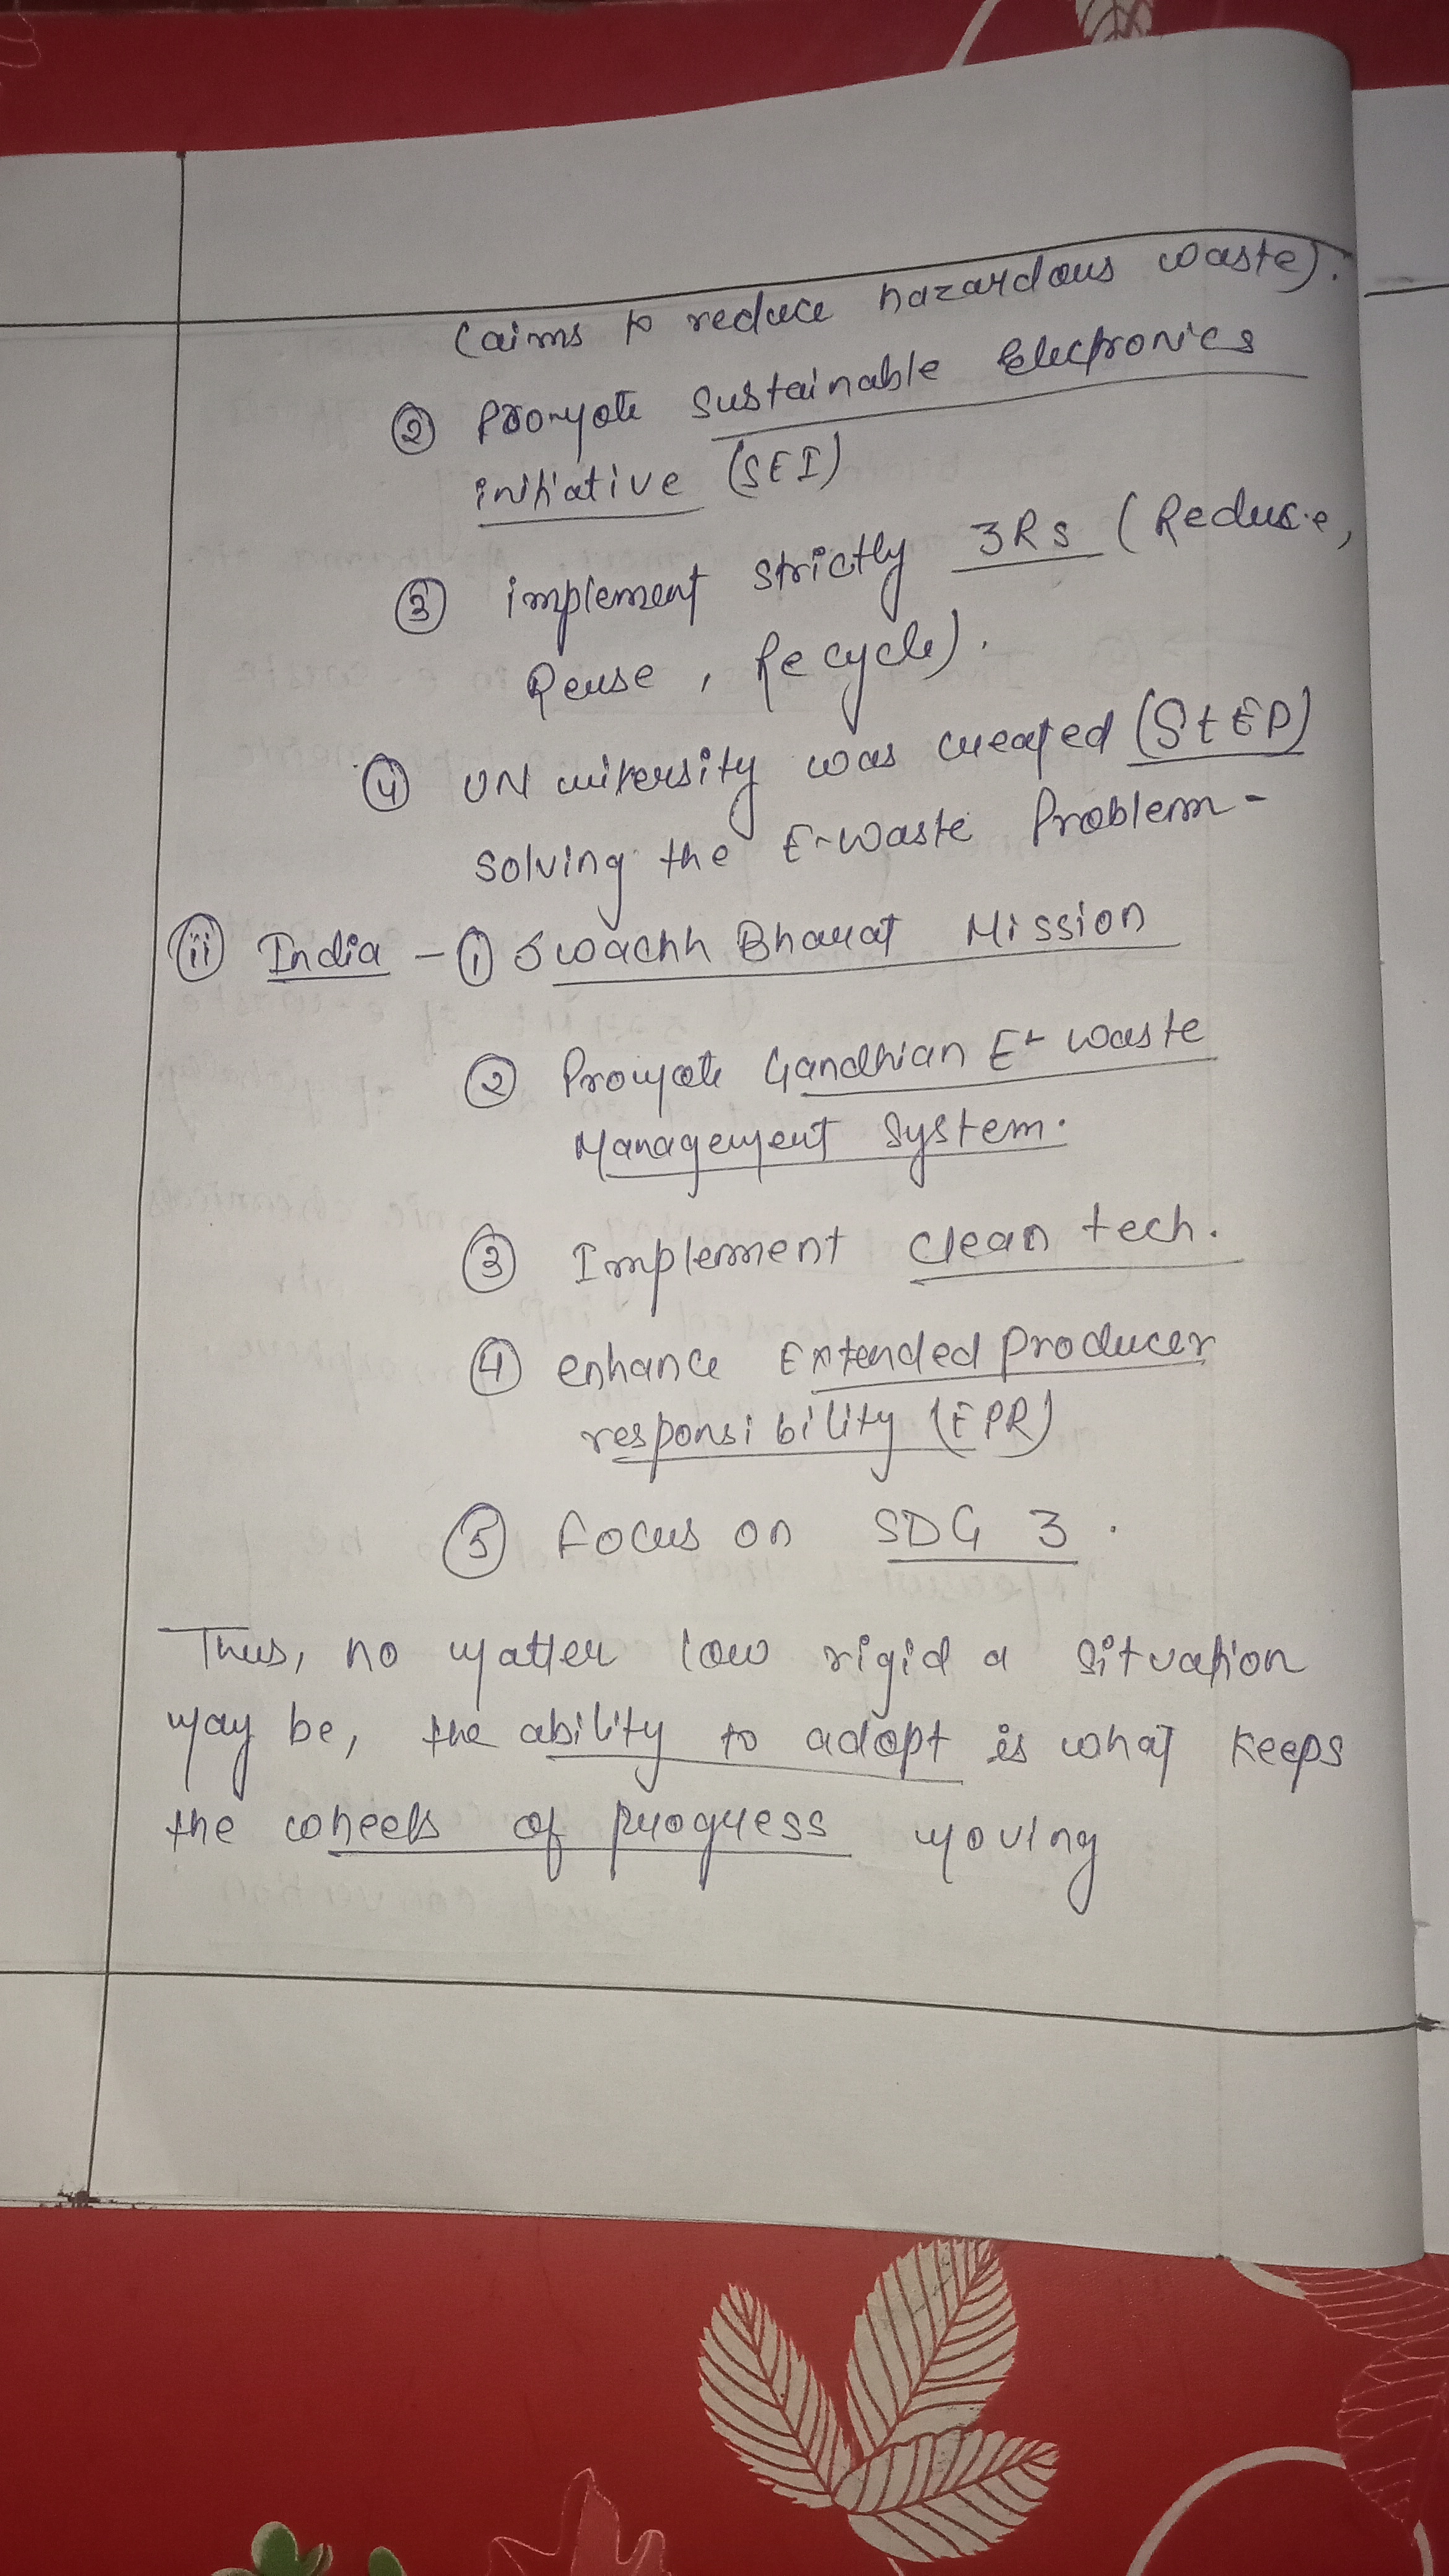 (aims to reduce hazardous waste).
② Promote Sustainable Electronics
initiative (SEI)
③ implement strictly 3Rs (Reduce,
Reuse, Recycle).
④ UN university was created (StEP)
solving the E-waste Problem-
(ii) India - ① Swachh Bharat Mission
② Promote Gandhian E-waste
Management System.
③ Implement clean tech.
④ enhance Extended Producer
responsibility (EPR)
⑤ Focus on SDG 3.
Thus, no matter low rigid a situation
may be, the ability to adopt is what keeps
the wheels of progress moving